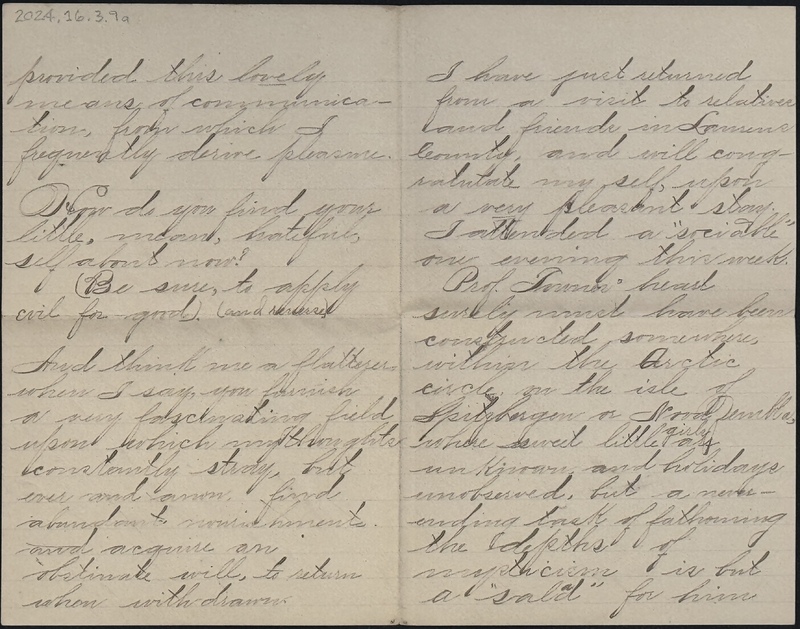 2024.16.3.9a
provided this lovely
means of communica-
tion, from which I
frequently derive pleasure.
How do you find your
little, mean, hateful,
self about now?
(Be sure, to apply
evil for good). (and reverse)
And think me a flatterer
when I say, you furnish
a very fascinating field
upon which my thoughts
constantly stray, but
ever and anon, find
abundant nourishment.
and acquire an
obstinate will, to return
when withdrawn.
I have just returned
from a visit to relatives
and friends in Laurens
County, and will cong-
ratulate my self, upon
a very pleasant stay.
I attended a "sociable"
one evening this week.
Prof. Towns' heart
surely must have been
constructed somewhere,
within the Arctic
circle, on the isle of
Spitzbergen or Nova Zembla,
where sweet little girls are
unknown, and holidays
unobserved, but a never-
ending task of fathoming
the depths of
mysticism is but
a "salad" for him